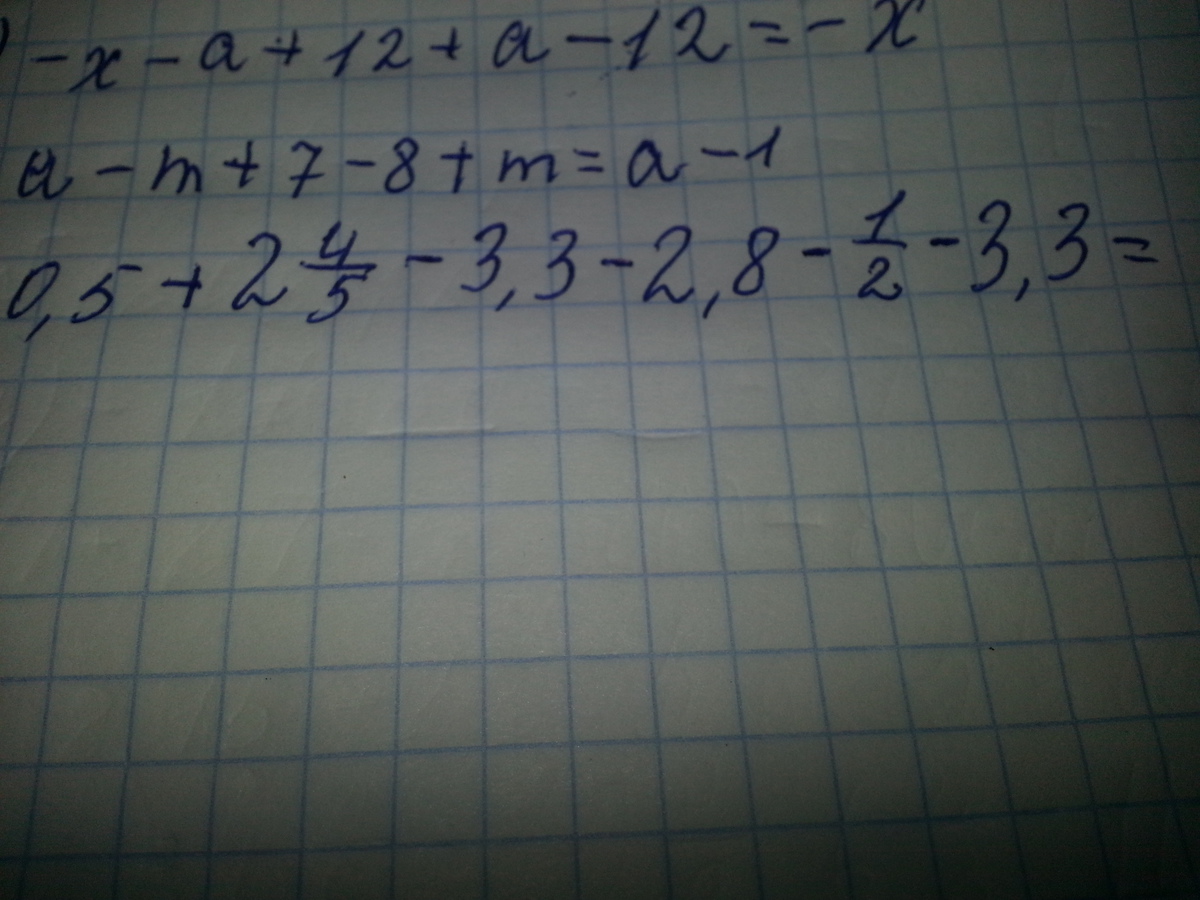 ) -x-a+12+a-12=-x
a-m+7-8+m=a-1
0,5+2 4/5-3,3-2,8-1/2-3,3=